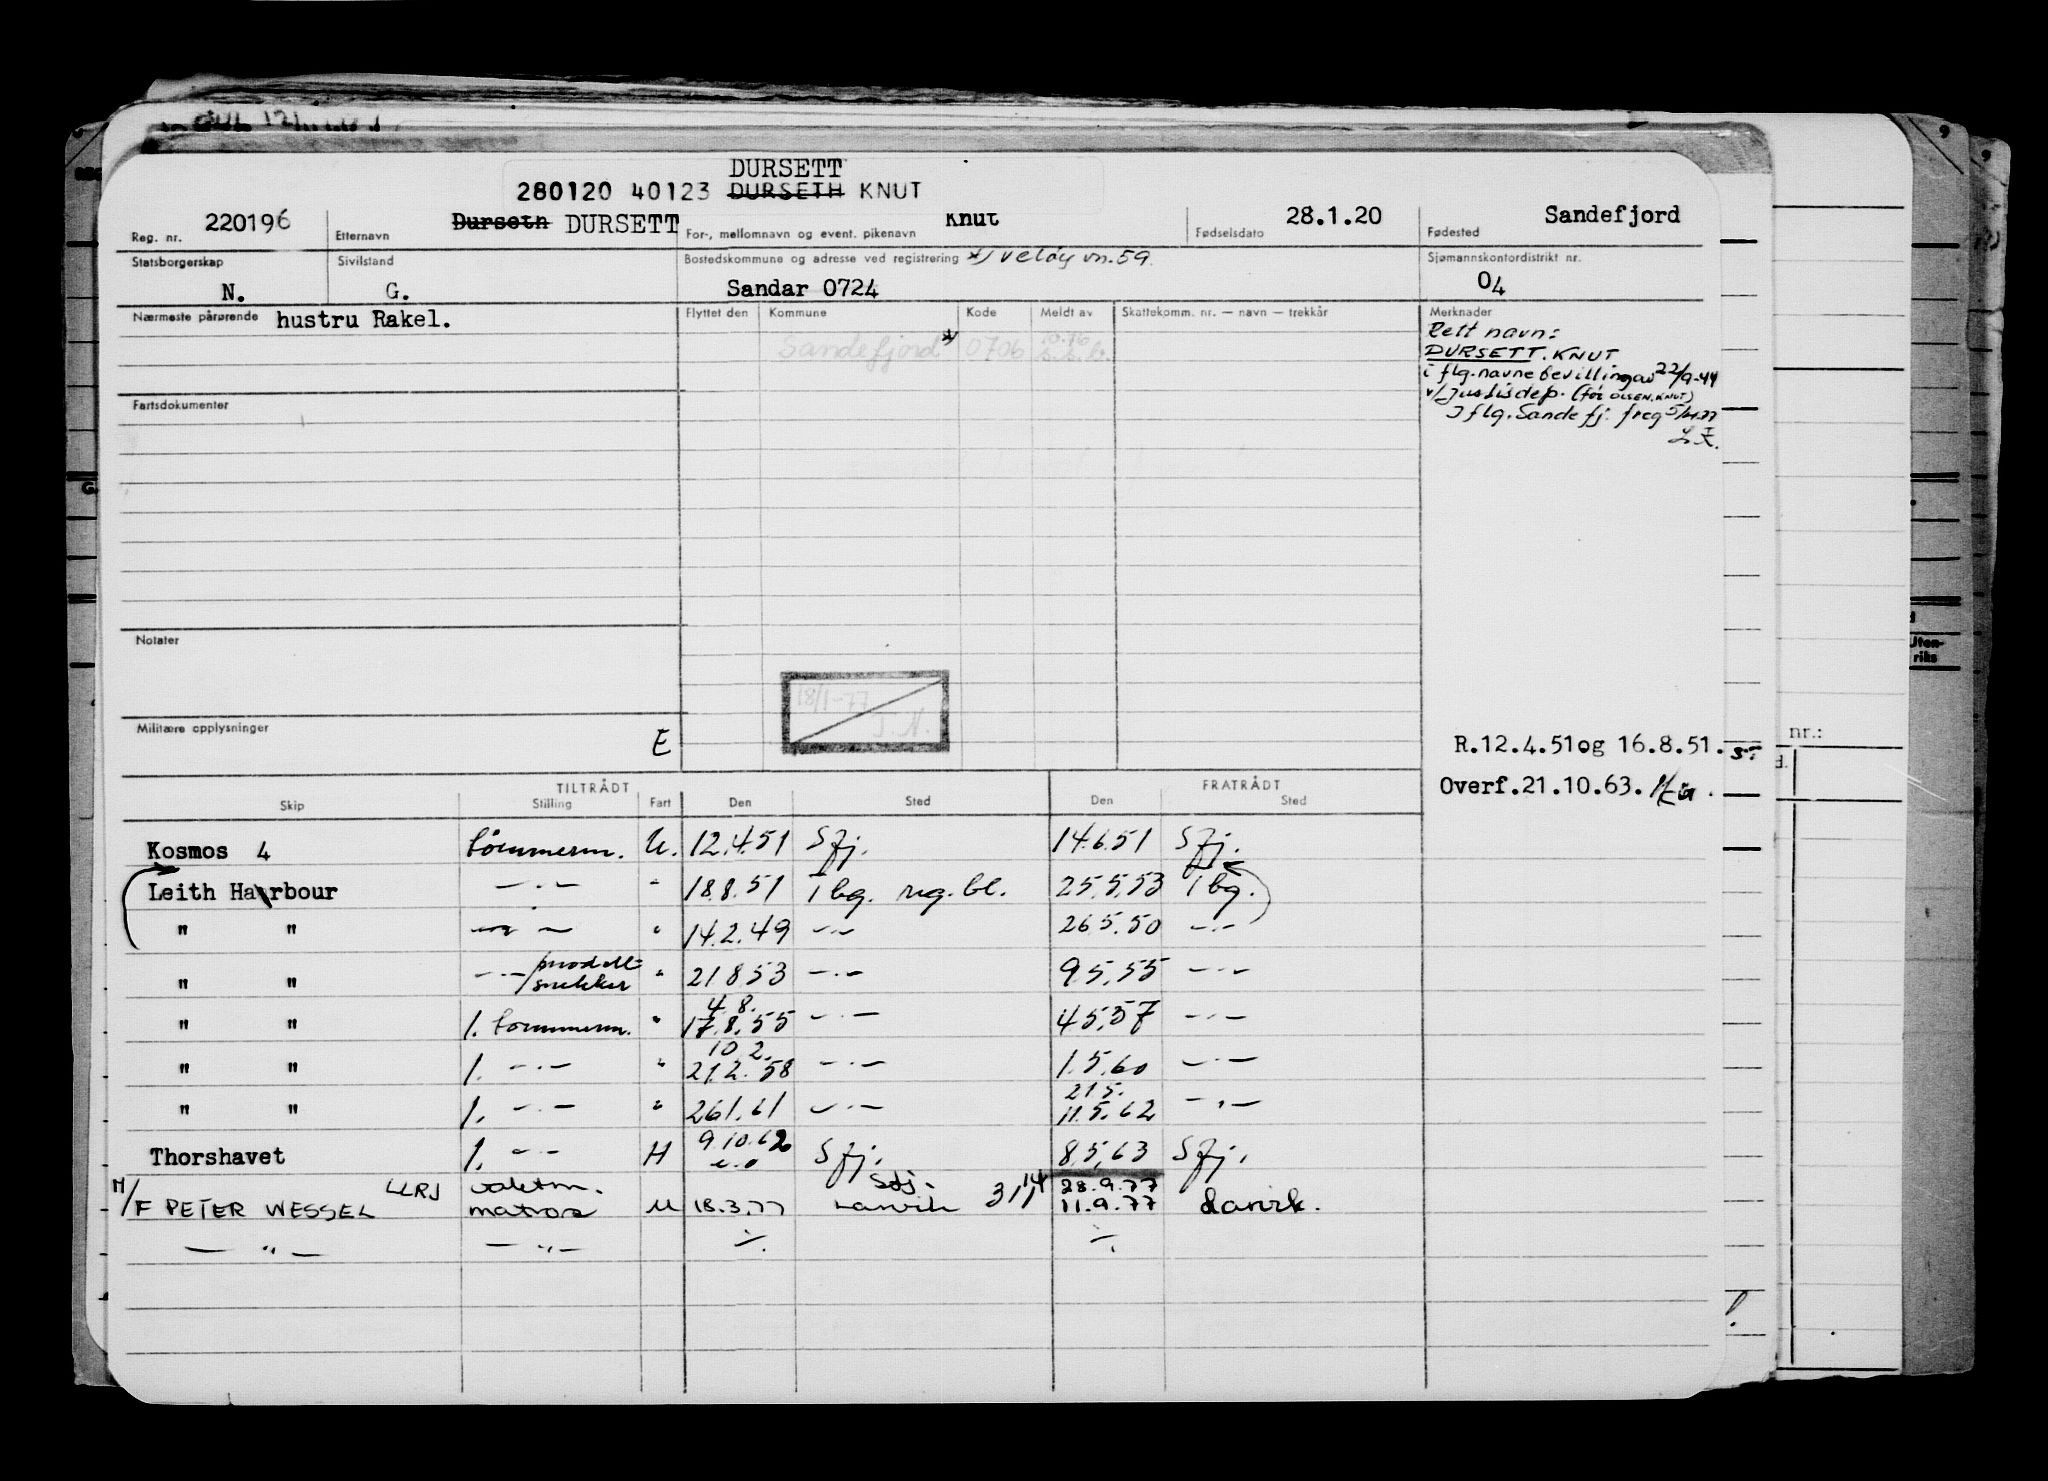 DURSETT
280120 40123 DURSETH KNUT
Reg. nr. 220196 Etternavn Durseth DURSETT For-, mellomnavn og event. pikenavn Knut Fødselsdato 28.1.20 Fødested Sandefjord
Statsborgerskap Sivilstand Bostedskommune og adresse ved registrering *) veløy vn. 59. Sjømannskontordistrikt nr.
N. G. Sandar 0724 04
Nærmeste pårørende hustru Rakel. Flyttet den Kommune Kode Meldt av Skattekomm. nr. — navn — trekkår Merknader
Sandefjord *) 0706 10.76
Rett navn:
DURSETT. KNUT
i flg. navnebevilling av 22/9-44
v/Justisdep. (før OLSEN, KNUT)
I flg. Sandefj. freg 5/4-77
Fartsdokumenter
Notater
18/1-77
Militære opplysninger E
R.12.4.51og 16.8.51.
Overf.21.10.63.
TILTRÅDT FRATRÅDT
Skip Stilling Fart Den Sted Den Sted
Kosmos 4 tömmerm. U. 12.4.51 Sfj. 14.6.51 Sfj.
Leith Harbour —·— " 18.8.51 i bg. rug. bl. 25.5.53 i bg.
" " —·— " 14.2.49 —·— 26.5.50 —·—
" " —·—/modell-
snekker " 21.8.53 —·— 9.5.55 —·—
4.8.
" " 1. tömmerm. " 17.8.55 —·— 4.5.57 —·—
10.2.
" " 1. —·— " 21.2.58 —·— 1.5.60 —·—
21.5.
" " 1. —·— " 26.1.61 —·— 11.5.62 —·—
Thorshavet 1. —·— H 9.10.62 Sfj. 8.5.63 Sfj.
M/F PETER WESSEL LLRJ
matros U 18.3.77 Larvik 31/14 28.9.77
11.9.77 Larvik.
— " — — " — ÷ ÷
nr.:
Uten-
riks